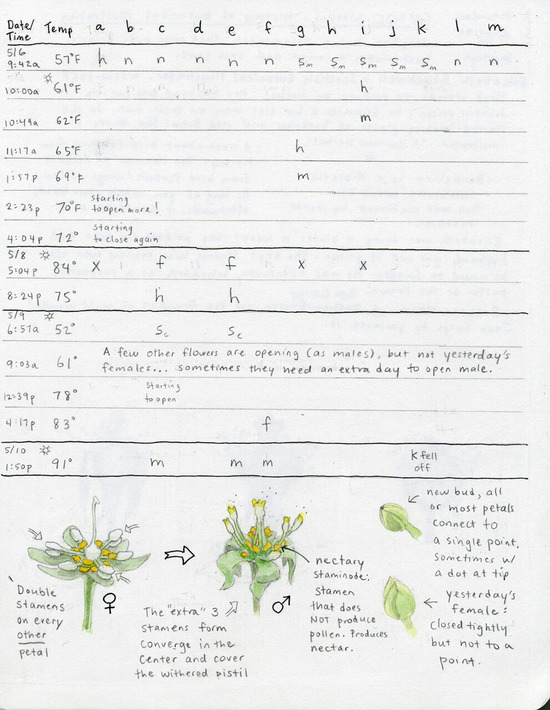 Date/
Time Temp a b c d e f g h i j k l m
5/6
9:42a 57°F h n n n n n Sm Sm Sm Sm Sm n n
10:00a 61°F h
10:49a 62°F m
11:17a 65°F h
1:57p 69°F m
2:23p 70°F starting
to open more!
4:04p 72° starting
to close again
5/8
5:04p 84° x f f x x
8:24p 75° h h
5/9
6:57a 52° Sc Sc
9:03a 61° A few other flowers are opening (as males), but not yesterday's
females... sometimes they need an extra day to open male.
12:39p 78° starting
to open
4:17p 83° f
5/10
1:50p 91° m m m k fell
off
Double
stamens
on every
other
petal
♀
The "extra" 3
stamens form
converge in the
center and cover
the withered pistil
♂
nectary
staminode:
stamen
that does
NOT produce
pollen. Produces
nectar.
new bud, all
or most petals
connect to
a single point,
sometimes w/
a dot at tip
yesterday's
female:
closed tightly
but not to a
point.